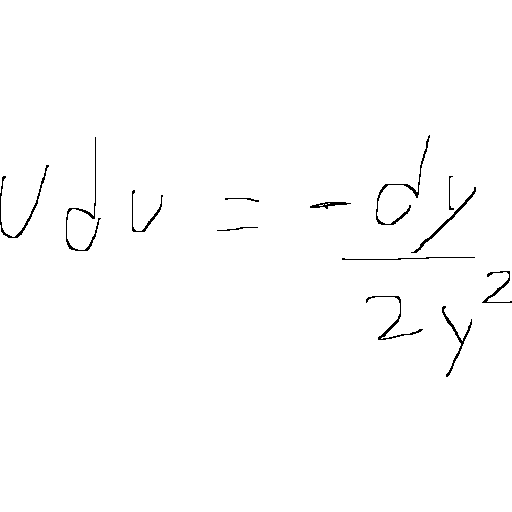 v dv = - \frac{dy}{2y^2}